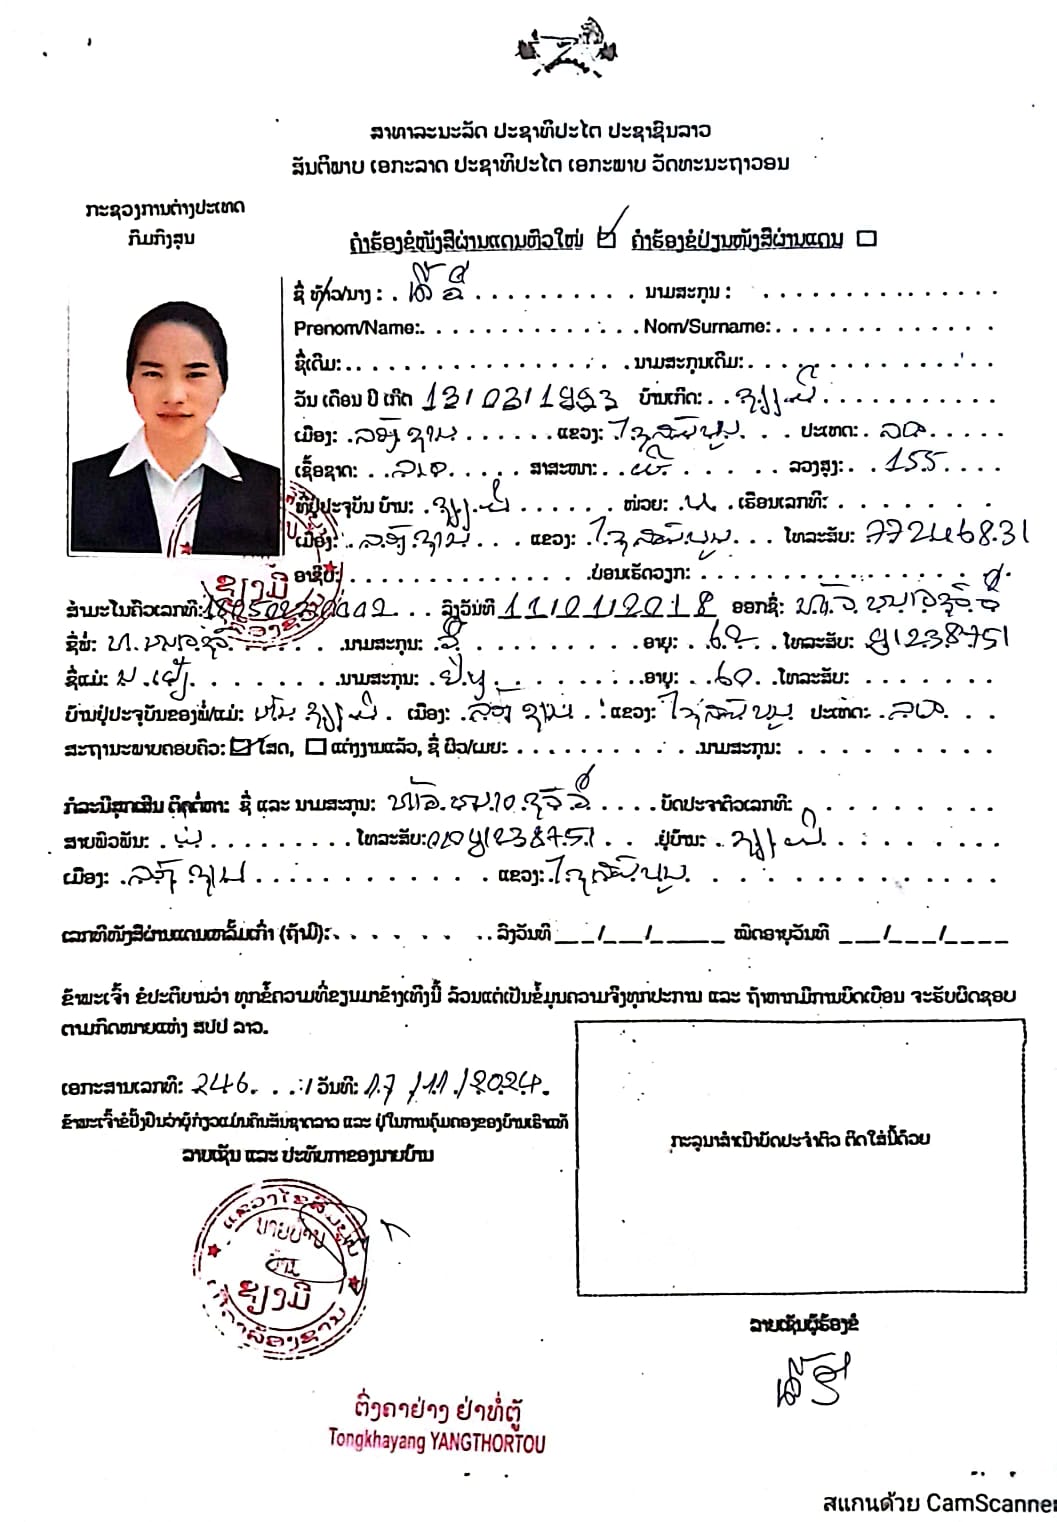 ສາທາລະນະລັດ ປະຊາທິປະໄຕ ປະຊາຊົນລາວ
ສັນຕິພາບ ເອກະລາດ ປະຊາທິປະໄຕ ເອກະພາບ ວັດທະນະຖາວອນ
ກະຊວງການຕ່າງປະເທດ
ກົມກົງສຸນ
ຄໍາຮ້ອງຂໍໜັງສືຜ່ານແດນຫົວໃໝ່ ☑ ຄໍາຮ້ອງຂໍປ່ຽນໜັງສືຜ່ານແດນ ☐
ຊື່ ທ້າວ/ນາງ : . ນາມສະກຸນ :
Prenom/Name: Nom/Surname:
ຊື່ເດີມ: ນາມສະກຸນເດີມ:
ວັນ ເດືອນ ປີ ເກີດ 13/03/1993 ບ້ານເກີດ: ຊຽງມີ
ເມືອງ: ລ້ອງຊານ ແຂວງ: ໄຊສົມບູນ ປະເທດ: ລາວ
ເຊື້ອຊາດ: ລາວ ສາສະໜາ: ຜີ ລວງສູງ: 155
ທີ່ຢູ່ປະຈຸບັນ ບ້ານ: ຊຽງມີ ໜ່ວຍ: ເຮືອນເລກທີ:
ເມືອງ: ລ້ອງຊານ ແຂວງ: ໄຊສົມບູນ ໂທລະສັບ:
ອາຊີບ: ບ່ອນເຮັດວຽກ:
ສໍາມະໂນຄົວເລກທີ: ລົງວັນທີ 11/01/2018 ອອກຊື່:
ຊື່ພໍ່: ນາມສະກຸນ: ອາຍຸ: ໂທລະສັບ:
ຊື່ແມ່: ນາມສະກຸນ: ອາຍຸ: 60 ໂທລະສັບ:
ບ້ານຢູ່ປະຈຸບັນຂອງພໍ່/ແມ່: ບ້ານ ຊຽງມີ ເມືອງ: ລ້ອງຊານ ແຂວງ: ໄຊສົມບູນ ປະເທດ: ລາວ
ສະຖານະພາບຄອບຄົວ: ☑ ໂສດ, ☐ ແຕ່ງງານແລ້ວ, ຊື່ ຜົວ/ເມຍ: ນາມສະກຸນ:
ກໍລະນີສຸກເສີນ ຕິດຕໍ່ຫາ: ຊື່ ແລະ ນາມສະກຸນ: ບັດປະຈໍາຕົວເລກທີ:
ສາຍພົວພັນ: ພໍ່ ໂທລະສັບ: ຢູ່ບ້ານ: ຊຽງມີ
ເມືອງ: ລ້ອງຊານ ແຂວງ: ໄຊສົມບູນ
ເລກທີໜັງສືຜ່ານແດນຫລັ້ມເກົ່າ (ຖ້າມີ): ລົງວັນທີ __/__/____ ໝົດອາຍຸວັນທີ __/__/____
ຂ້າພະເຈົ້າ ຂໍປະຕິຍານວ່າ ທຸກຂໍ້ຄວາມທີ່ຂຽນມາຂ້າງເທິງນີ້ ລ້ວນແຕ່ເປັນຂໍ້ມູນຄວາມຈິງທຸກປະການ ແລະ ຖ້າຫາກມີການບິດເບືອນ ຈະຮັບຜິດຊອບ
ຕາມກົດໝາຍແຫ່ງ ສປປ ລາວ.
ເອກະສານເລກທີ: 246 / ວັນທີ: 17/11/2024
ຂ້າພະເຈົ້າຂໍຢັ້ງຢືນວ່າຜູ້ກ່ຽວແມ່ນຄົນສັນຊາດລາວ ແລະ ຢູ່ໃນການຄຸ້ມຄອງຂອງບ້ານເຮົາແທ້
ລາຍເຊັນ ແລະ ປະທັບກາຂອງນາຍບ້ານ
ກະລຸນາສໍາເນົາບັດປະຈໍາຕົວ ຕິດໃສ່ນີ້ດ້ວຍ
ແຂວງໄຊສົມບູນ
ນາຍບ້ານ
ບ້ານ
ຊຽງມີ
ເມືອງລ້ອງຊານ
ລາຍເຊັນຜູ້ຮ້ອງຂໍ
ຕົ່ງຄາຢ່າງ ຢ່າທໍ່ຕູ້
Tongkhayang YANGTHORTOU
สแกนด้วย CamScanner